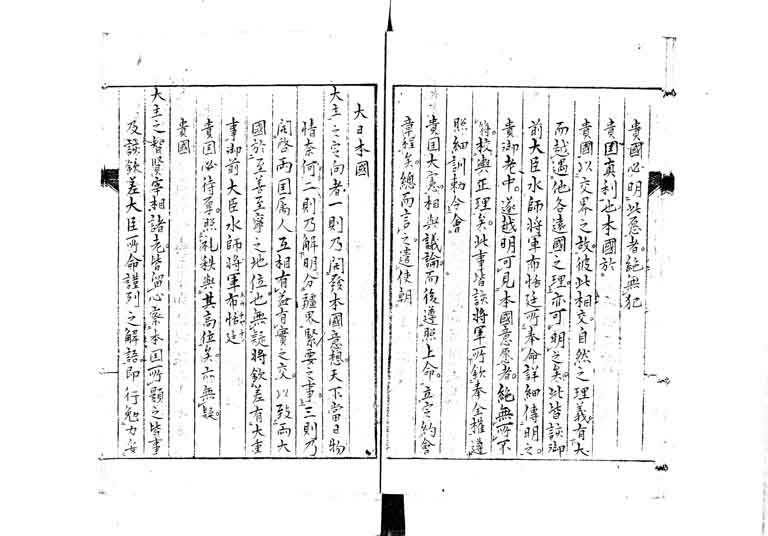 貴國必明此意者絶無犯
貴国真利也本國於
貴國以交界之故彼此相交自然之理義有大
而越過他各遠國之理亦可明之矣此皆該御
前大臣水師將軍布恬廷所奉命詳細傳明之
貴御老中遂越明可見本國意愿者絶無所不
符校與正理矣此事皆該將軍所欽奉全權遵
照細訓勅令會
貴国大憲相與議論而後遵照上命立定約會
章程矣總而言之遣使朝
大日本國
大主之定向者一則乃開發本國意想天下當日物
情奈何二則乃解明分疆界緊要之事三則乃
開啓两国属人互相有益有實之交以致両大
國於至善至寧之地位也無疑将欽差有大重
事御前大臣水師將軍布恬廷
貴国必待尊照礼秩與其高位矣亦無疑
貴國
大主之智賢宰相諸老皆留心察本国所願之皆事
及該欽差大臣所命謹列之解語即行勉力妥